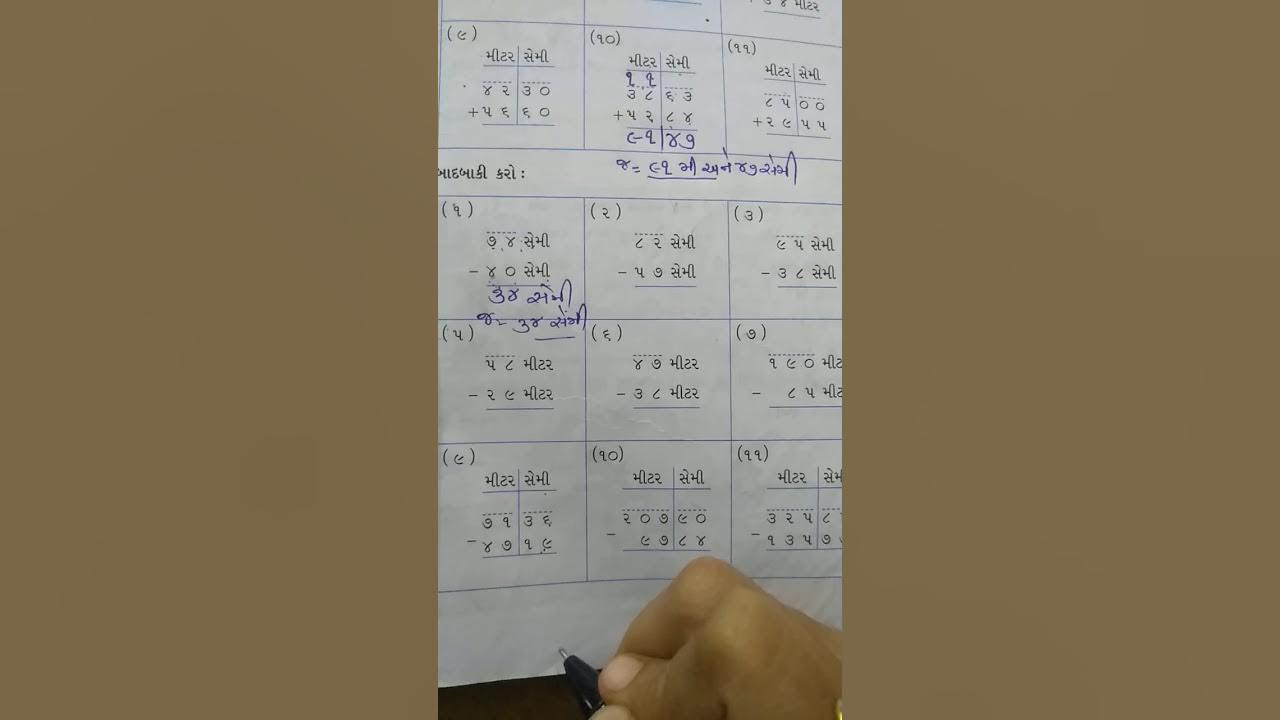 ૩ ૪ મીટર
(૯) (૧૦) (૧૧)
મીટર સેમી મીટર સેમી મીટર સેમી
૧ ૧
૪ ૨ ૩ ૦ ૩ ૮ ૬ ૩ ૮ ૫ ૦ ૦
+ ૫ ૬ ૬ ૦ + ૫ ૨ ૮ ૪ + ૨ ૯ ૫ ૫
૯૧ ૪૭
જ= ૯૧ મી અને ૪૭ સેમી
બાદબાકી કરો :
(૧) (૨) (૩)
૭ ૪ સેમી ૮ ૨ સેમી ૯ ૫ સેમી
- ૪ ૦ સેમી - ૫ ૭ સેમી - ૩ ૮ સેમી
૩૪ સેમી
જ= ૩૪ સેમી
(૫) (૬) (૭)
૫ ૮ મીટર ૪ ૭ મીટર ૧ ૯ ૦ મીટ
- ૨ ૯ મીટર - ૩ ૮ મીટર - ૮ ૫ મીટ
(૯) (૧૦) (૧૧)
મીટર સેમી મીટર સેમી મીટર સેમ
૭ ૧ ૩ ૬ ૨ ૦ ૭ ૯ ૦ ૩ ૨ ૫ ૮
- ૪ ૭ ૧ ૯ - ૯ ૭ ૮ ૪ - ૧ ૩ ૫ ૭